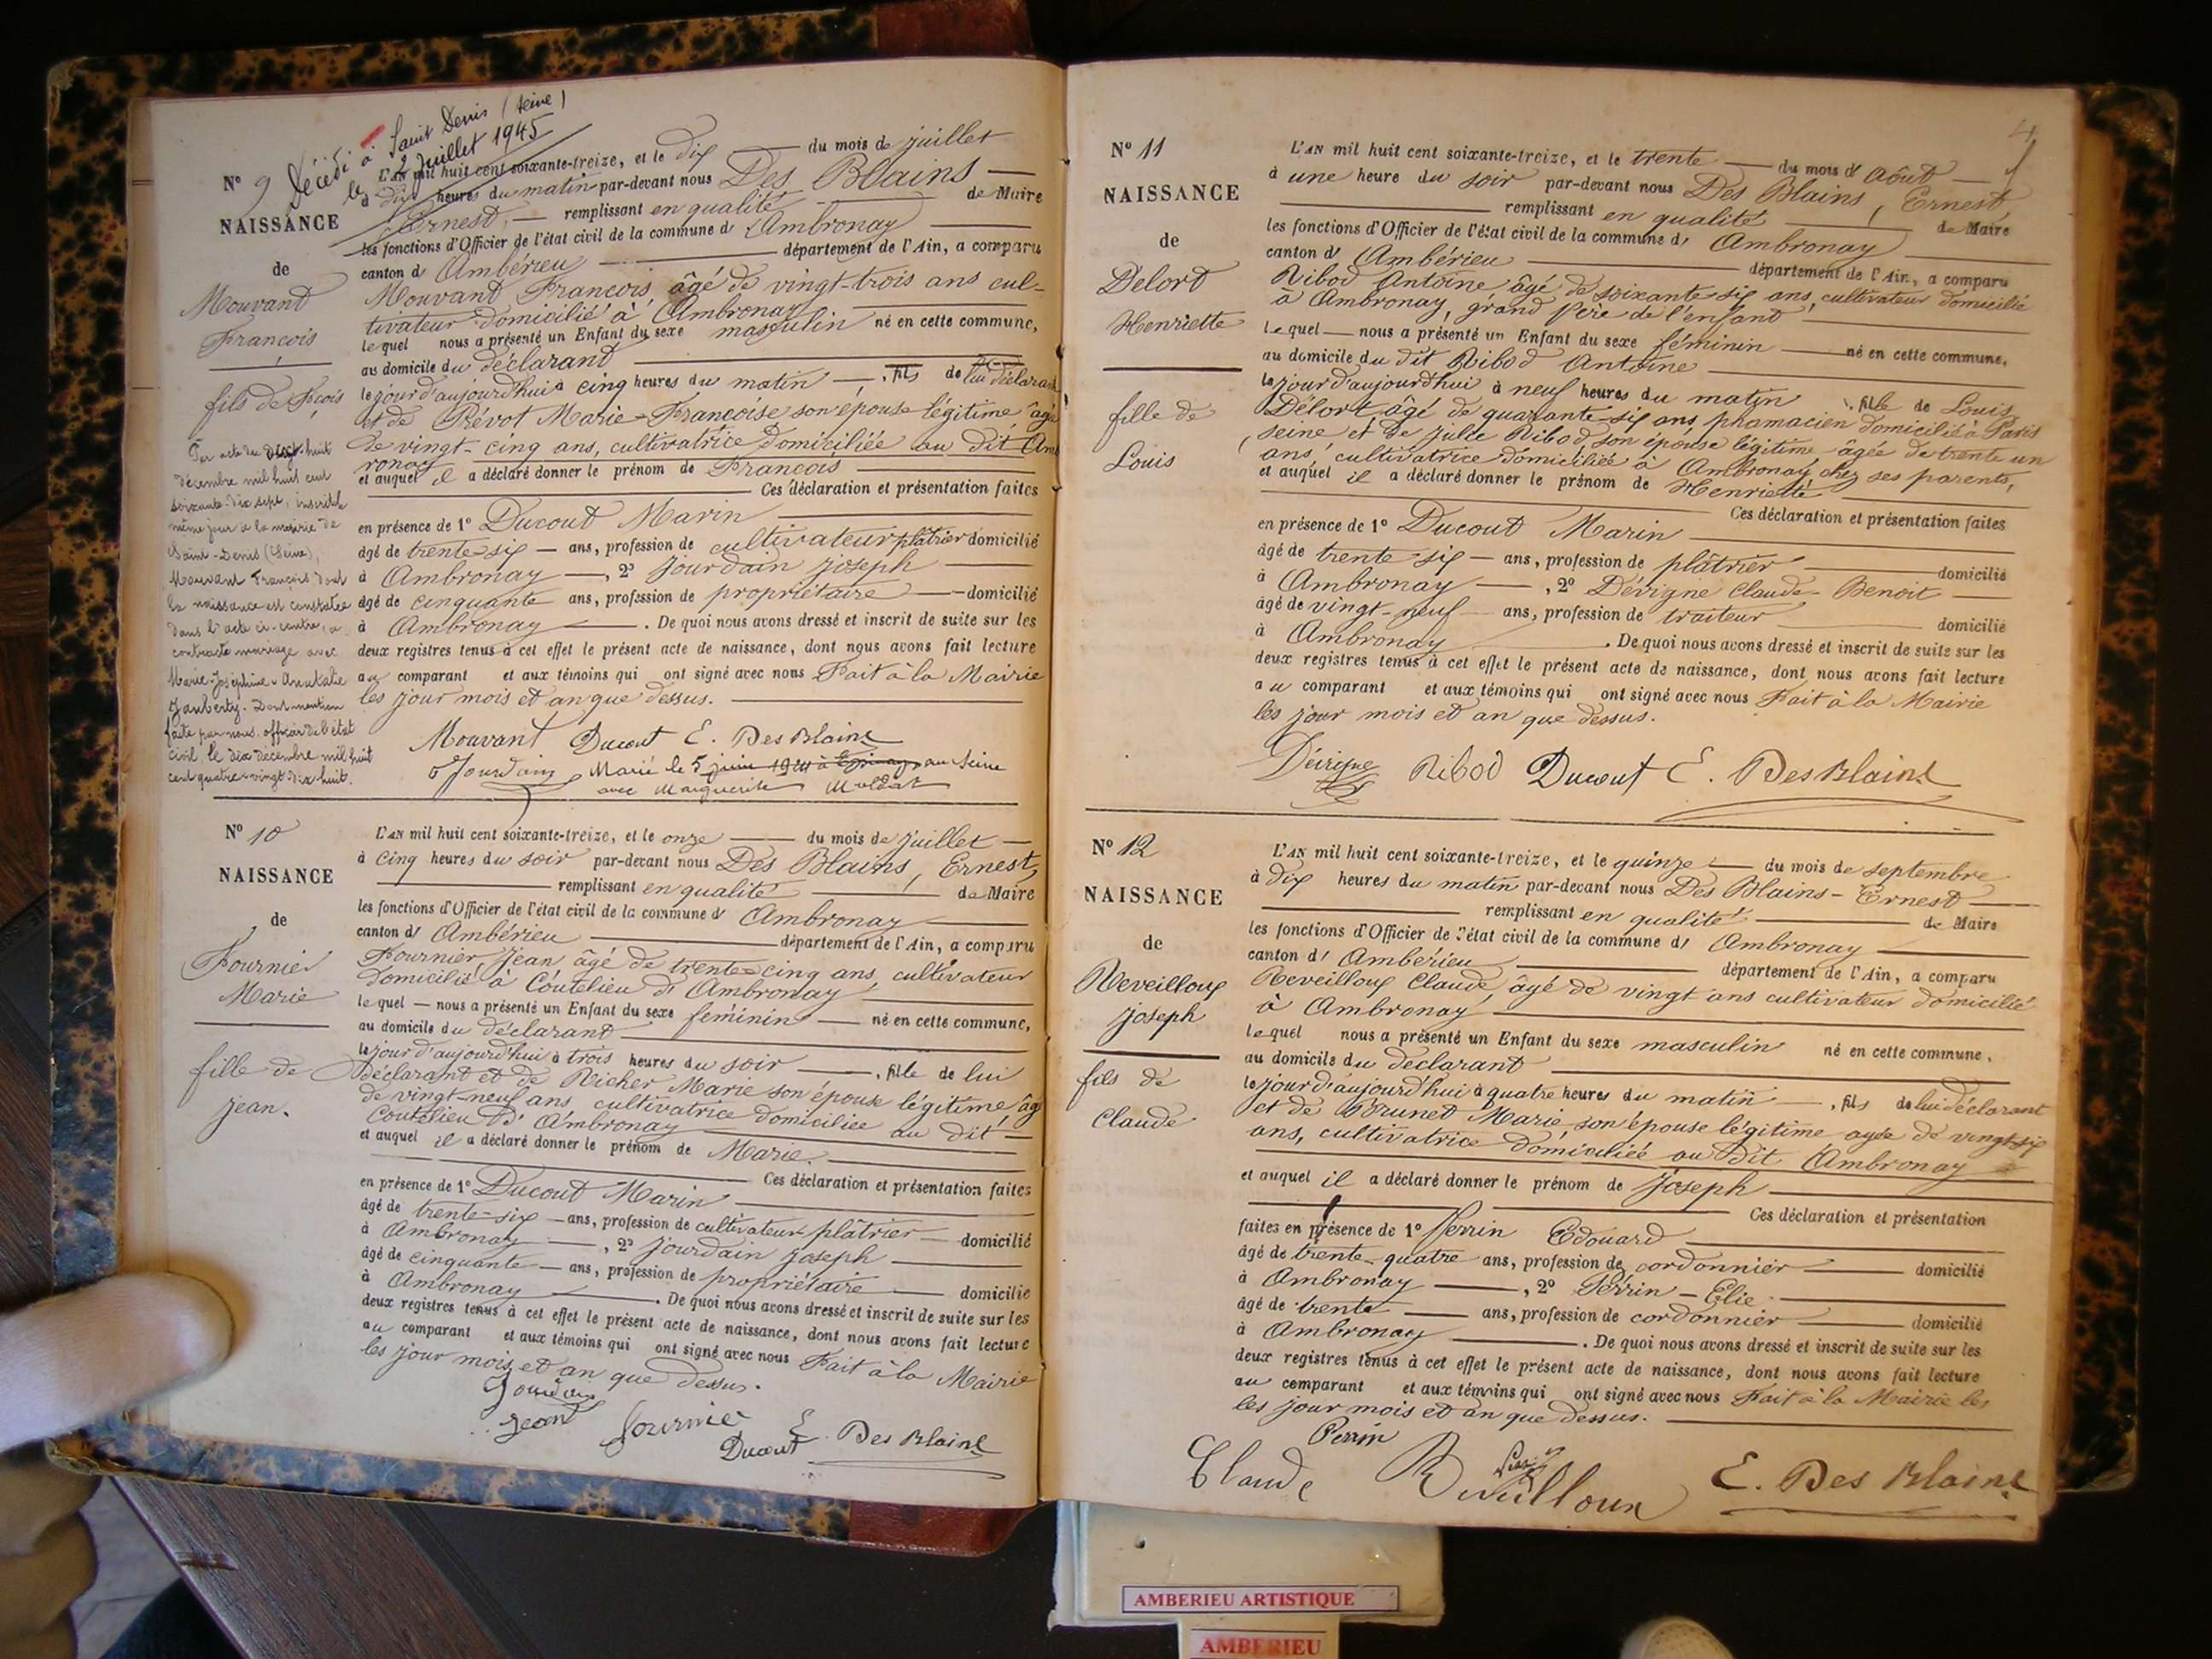 Décédé à Saint Denis (Seine)
le 2 juillet 1945
N° 9
NAISSANCE
de
Mouvant
François
fils de Fçois
Par acte du dix-huit
décembre mil huit cent
soixante-dix sept, inscrit le
même jour à la mairie de
Saint-Denis (Seine),
Mouvant François dont
la naissance est constatée
dans l'acte ci-contre, a
contracté mariage avec
Marie-Joséphine
Jauberty. Dont mention
faite par nous, officier de l'état
civil, le dix décembre mil huit
cent quatre-vingt-dix-huit.
L'AN mil huit cent soixante-treize, et le dix du mois de juillet
à dix heures du matin par-devant nous Des Blains
Ernest, remplissant en qualité de Maire
les fonctions d'Officier de l'état civil de la commune d' Ambronay
canton d' Ambérieu département de l'Ain, a comparu
Mouvant François, âgé de vingt-trois ans cul-
tivateur domicilié à Ambronay
lequel nous a présenté un Enfant du sexe masculin né en cette commune,
au domicile du déclarant
le jour d'aujourd'hui à cinq heures du matin, fils de lui déclarant
et de Prévot Marie-Françoise son épouse légitime âgée
de vingt-cinq ans, cultivatrice domiciliée au dit Amb
ronay
et auquel il a déclaré donner le prénom de François
Ces déclaration et présentation faites
en présence de 1° Ducout Marin
âgé de trente-six ans, profession de cultivateur plâtrier domicilié
à Ambronay, 2° Jourdain Joseph
âgé de cinquante ans, profession de propriétaire domicilié
à Ambronay. De quoi nous avons dressé et inscrit de suite sur les
deux registres tenus à cet effet le présent acte de naissance, dont nous avons fait lecture
au comparant et aux témoins qui ont signé avec nous Fait à la Mairie
les jour mois et an que dessus.
Mouvant Ducout E. Des Blains
Jourdain Marié le 5 juin 19 à Epinay sur Seine
avec Marguerite
N° 10
NAISSANCE
de
Fournier
Marie
fille de
Jean.
L'AN mil huit cent soixante-treize, et le onze du mois de juillet
à cinq heures du soir par-devant nous Des Blains, Ernest,
remplissant en qualité de Maire
les fonctions d'Officier de l'état civil de la commune d' Ambronay
canton d' Ambérieu département de l'Ain, a comparu
Fournier, Jean âgé de trente-cinq ans, cultivateur
domicilié à Coutelieu d'Ambronay
lequel nous a présenté un Enfant du sexe féminin né en cette commune,
au domicile du déclarant
le jour d'aujourd'hui à trois heures du soir, fille de lui
déclarant et de Richer Marie son épouse légitime âg
de vingt-neuf ans cultivatrice domiciliée au dit
Coutelieu d'Ambronay
et auquel il a déclaré donner le prénom de Marie.
Ces déclaration et présentation faites
en présence de 1° Ducout Marin
âgé de trente-six ans, profession de cultivateur plâtrier domicilié
à Ambronay, 2° Jourdain Joseph
âgé de cinquante ans, profession de propriétaire domicilié
à Ambronay. De quoi nous avons dressé et inscrit de suite sur les
deux registres tenus à cet effet le présent acte de naissance, dont nous avons fait lecture
au comparant et aux témoins qui ont signé avec nous Fait à la Mairie
les jour mois et an que dessus.
Jourdain
Jean Fournier
Ducout E. Des Blains
4
N° 11
NAISSANCE
de
Delort
Henriette
fille de
Louis
L'AN mil huit cent soixante-treize, et le trente du mois d' Août
à une heure du soir par-devant nous Des Blains, Ernest,
remplissant en qualité de Maire
les fonctions d'Officier de l'état civil de la commune d' Ambronay
canton d' Ambérieu département de l'Ain, a comparu
Ribod Antoine âgé de soixante-six ans, cultivateur domicilié
à Ambronay, grand père de l'enfant
lequel nous a présenté un Enfant du sexe féminin né en cette commune,
au domicile du dit Ribod Antoine
le jour d'aujourd'hui à neuf heures du matin, fille de Louis
Délort âgé de quarante-six ans, pharmacien domicilié à Paris
seine et de Julie Ribod son épouse légitime âgée de trente un
ans, cultivatrice domiciliée à Ambronay chez ses parents,
et auquel il a déclaré donner le prénom de Henriette
Ces déclaration et présentation faites
en présence de 1° Ducout Marin
âgé de trente-six ans, profession de plâtrier domicilié
à Ambronay, 2° Dévigne Claude-Benoit
âgé de vingt-neuf ans, profession de traiteur domicilié
à Ambronay. De quoi nous avons dressé et inscrit de suite sur les
deux registres tenus à cet effet le présent acte de naissance, dont nous avons fait lecture
au comparant et aux témoins qui ont signé avec nous Fait à la Mairie
les jour mois et an que dessus.
Dévigne Ribod Ducout E. Des Blains
N° 12
NAISSANCE
de
Reveilloux
Joseph
fils de
Claude
L'AN mil huit cent soixante-treize, et le quinze du mois de septembre
à dix heures du matin par-devant nous Des Blains-Ernest
remplissant en qualité de Maire
les fonctions d'Officier de l'état civil de la commune d' Ambronay
canton d' Ambérieu département de l'Ain, a comparu
Reveilloux Claude, âgé de vingt ans cultivateur domicilié
à Ambronay
lequel nous a présenté un Enfant du sexe masculin né en cette commune,
au domicile du déclarant
le jour d'aujourd'hui à quatre heures du matin, fils de lui déclarant
et de Brunet Marie, son épouse légitime agée de vingt-six
ans, cultivatrice domiciliée au dit Ambronay
et auquel il a déclaré donner le prénom de Joseph
Ces déclaration et présentation
faites en présence de 1° Perrin Edouard
âgé de trente-quatre ans, profession de cordonnier domicilié
à Ambronay, 2° Perrin-Elie
âgé de trente ans, profession de cordonnier domicilié
à Ambronay. De quoi nous avons dressé et inscrit de suite sur les
deux registres tenus à cet effet le présent acte de naissance, dont nous avons fait lecture
au comparant et aux témoins qui ont signé avec nous Fait à la Mairie les
les jour mois et an que dessus.
Perrin
Claude Reveilloux E. Des Blains
AMBERIEU ARTISTIQUE
AMBERIEU